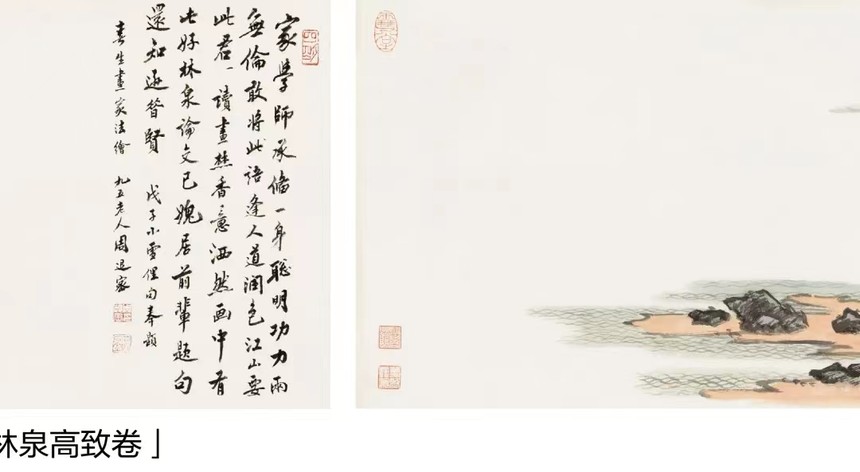 家學師承備一身聰明功力兩
無倫敢將此語逢人道潤色江山要
此君 讀畫焚香意洒然画中有
此好林泉論文已愧居前輩題句
還知逊昔賢 戊子小雪俚句奉題
春生畫家法繪 九五老人周退密
林泉高致卷」